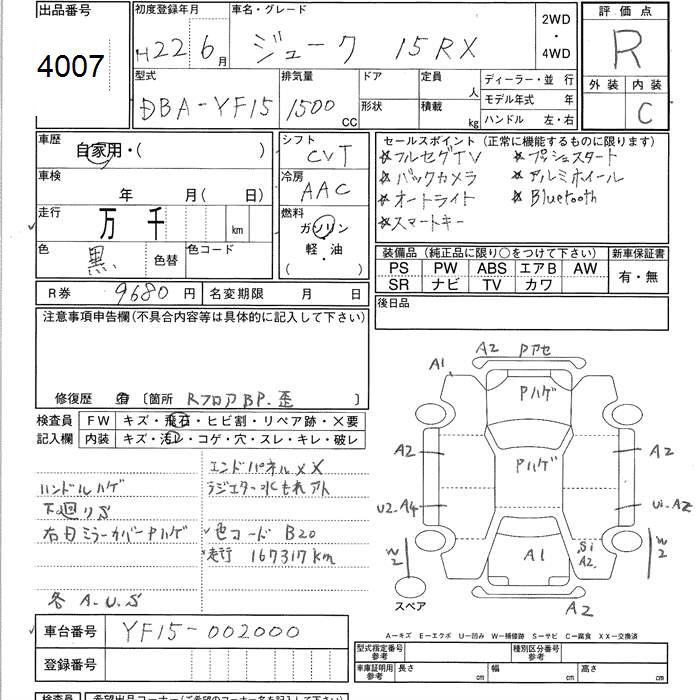 出品番号
4007
初度登録年月
H22 6月
車名・グレード
ジューク 15RX
2WD
・
4WD
評価点
R
外装 内装
C
型式
DBA-YF15
排気量
1500 CC
ドア
形状
定員 人
積載 kg
ディーラー・並 行
モデル年式 年
ハンドル 左・右
車歴
自家用・( )
車検
年 月( 日)
走行
万 千 km
色
黒 色替
色コード
シフト
CVT
冷房
AAC
燃料
ガソリン
軽・油
( )
セールスポイント (正常に機能するものに限ります)
☆フルセグTV ☆プッシュスタート
☆バックカメラ ☆アルミホイール
☆オートライト ☆Bluetooth
☆スマートキー
装備品 (純正品に限り○をつけて下さい)
PS PW ABS エアB AW
SR ナビ TV カワ
新車保証書
有・無
後日品
R券 9680円 名変期限 月 日
注意事項申告欄(不具合内容等は具体的に記入して下さい)
修復歴 有 〔箇所 RフロアBP.歪 〕
検査員 FW キズ・飛石・ヒビ割・リペア跡・×要
記入欄 内装 キズ・汚レ・コゲ・穴・スレ・キレ・破レ
エンドパネルXX
ハンドルハゲ
ラジエター水もれアト
下廻りS
右・左ミラーカバーPハゲ
色コード B20
走行 167317km
各 A.U.S
A2 Pアセ
A1
Pハゲ
A2
Pハゲ
A2
U2.A4
Ui.A2
W2
A1
Si
A2
W2
スペア
A2
車台番号 YF15-002000
登録番号
A—キズ E—エクボ U—凹み W—補修跡 S—サビ C—腐食 XX—交換済
型式指定番号
参考
種別区分番号
参考
車庫証明用
参考
長さ cm 幅 cm 高さ cm
検査員 希望出品コーナー(ご希望のコーナー名を記入下さい)